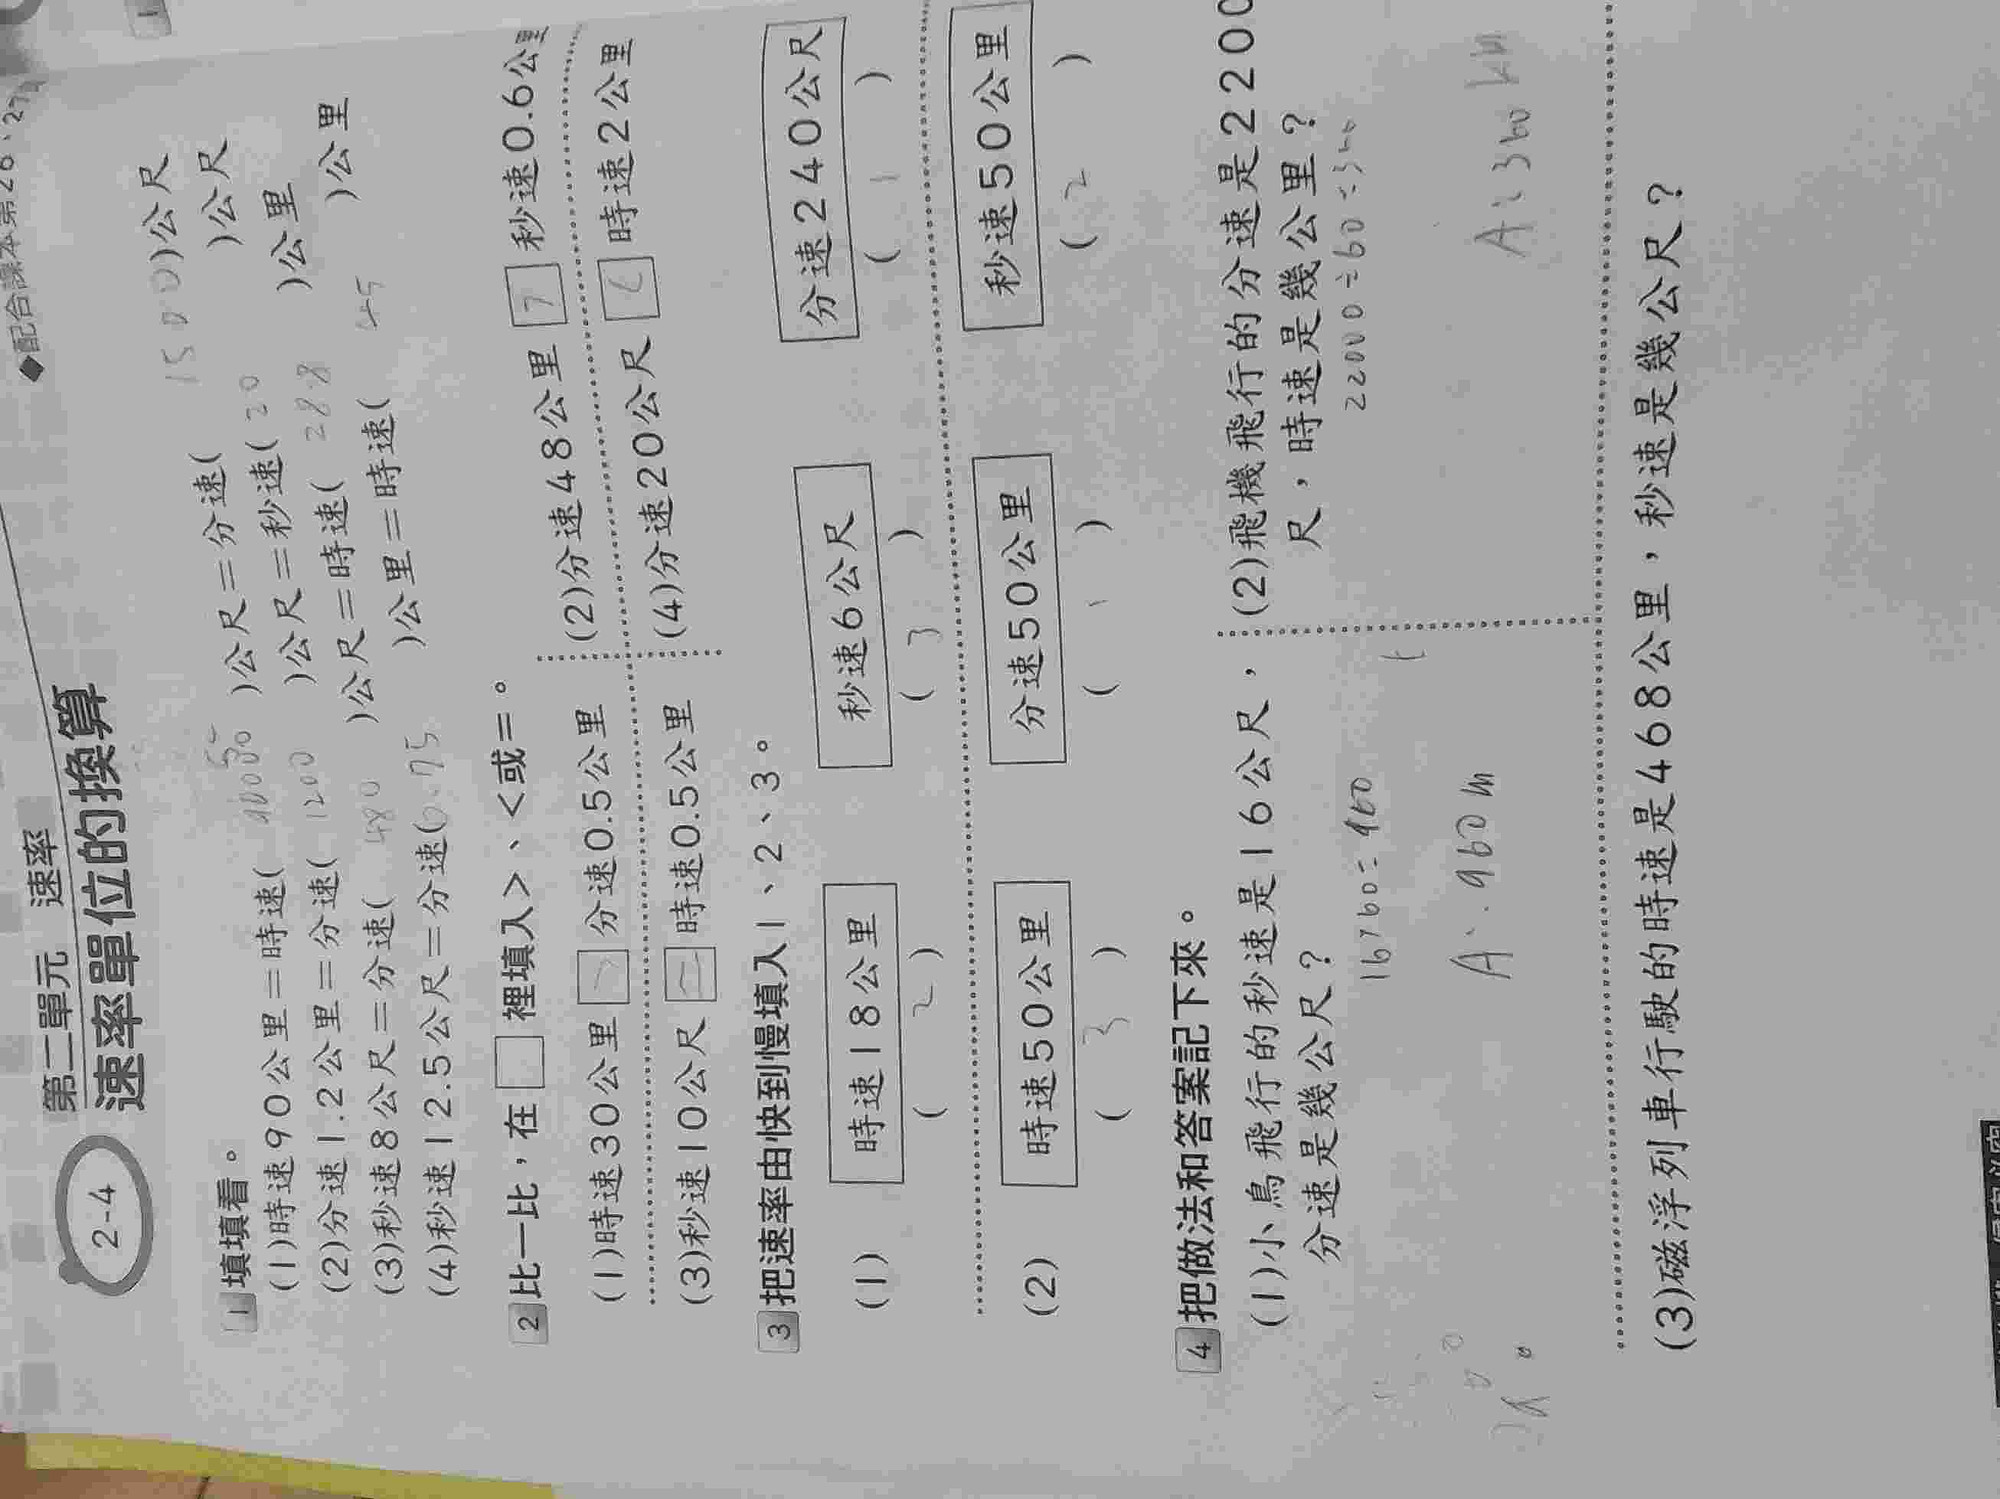 ◆配合課本第26、27
2-4
第二單元 速率
速率單位的換算
1 填填看。
(1)時速90公里=時速( )公尺=分速( 1500 )公尺
(2)分速1.2公里=分速( 1200 )公尺=秒速( 20 )公尺
(3)秒速8公尺=分速( 480 )公尺=時速( 28.8 )公里
(4)秒速12.5公尺=分速( 0.75 )公里=時速( 45 )公里
2 比一比,在□裡填入>、<或=。
(1)時速30公里 分速0.5公里
(2)分速48公里 > 秒速0.6公里
(3)秒速10公尺 時速0.5公里
(4)分速20公尺 < 時速2公里
3 把速率由快到慢填入1、2、3。
(1) 時速18公里 秒速6公尺 分速240公尺
( 2 ) ( 3 ) ( 1 )
(2) 時速50公里 分速50公里 秒速50公里
( 3 ) ( 1 ) ( 2 )
4 把做法和答案記下來。
(1)小鳥飛行的秒速是16公尺,
分速是幾公尺?
16×60=960
A:960m
(2)飛機飛行的分速是2200
尺,時速是幾公里?
22000÷60=
A:360km
(3)磁浮列車行駛的時速是468公里,秒速是幾公尺?